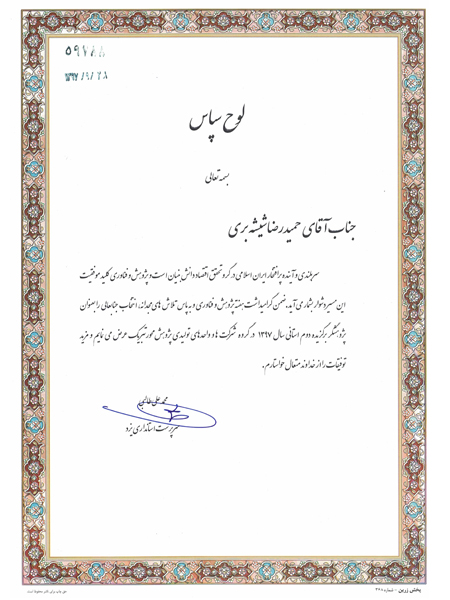 ۵۹۷۸۸
۱۳۹۷/۹/۲۸
لوح سپاس
بسمه تعالی
جناب آقای حمیدرضا شیشه بری
سربلندی و آینده پرافتخار ایران اسلامی در گرو تحقق اقتصاد دانش بنیان است و پژوهش و فناوری کلید موفقیت
این مسیر دشوار بشمار می آید. ضمن گرامیداشت هفته پژوهش و فناوری و به پاس تلاش های مجدانه، انتخاب جنابعالی را بعنوان
پژوهشگر برگزیده دوم استانی سال ۱۳۹۷ در گروه شرکت ها و واحدهای تولیدی پژوهش محور تبریک عرض می نمایم و مزید
توفیقات را از خداوند متعال خواستارم.
محمد علی طالبی
سرپرست استانداری یزد
پخش زرین - شماره ۳۲۸
حق چاپ برای ناشر محفوظ است